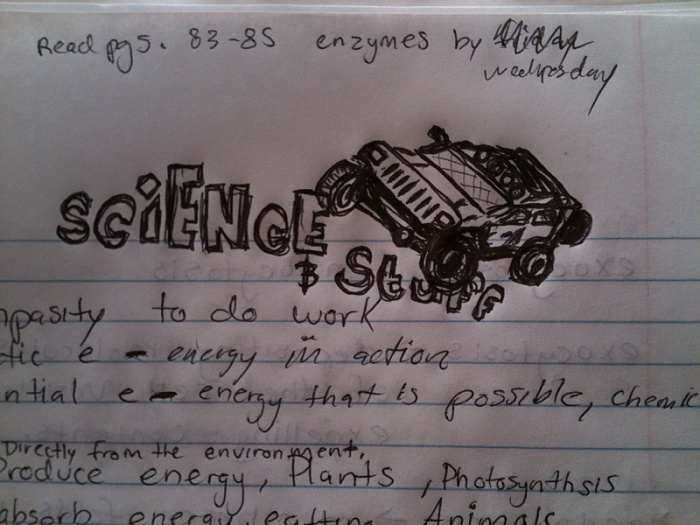 Read pgs. 83-85 enzymes by
wednesday
SCiENCE
& Stuff
mpasity to do work
tic e - energy in action
ntial e - energy that is possible, chemic
Directly from the environment,
Produce energy, Plants, Photosynthsis
absorb energy, eatting - Animals